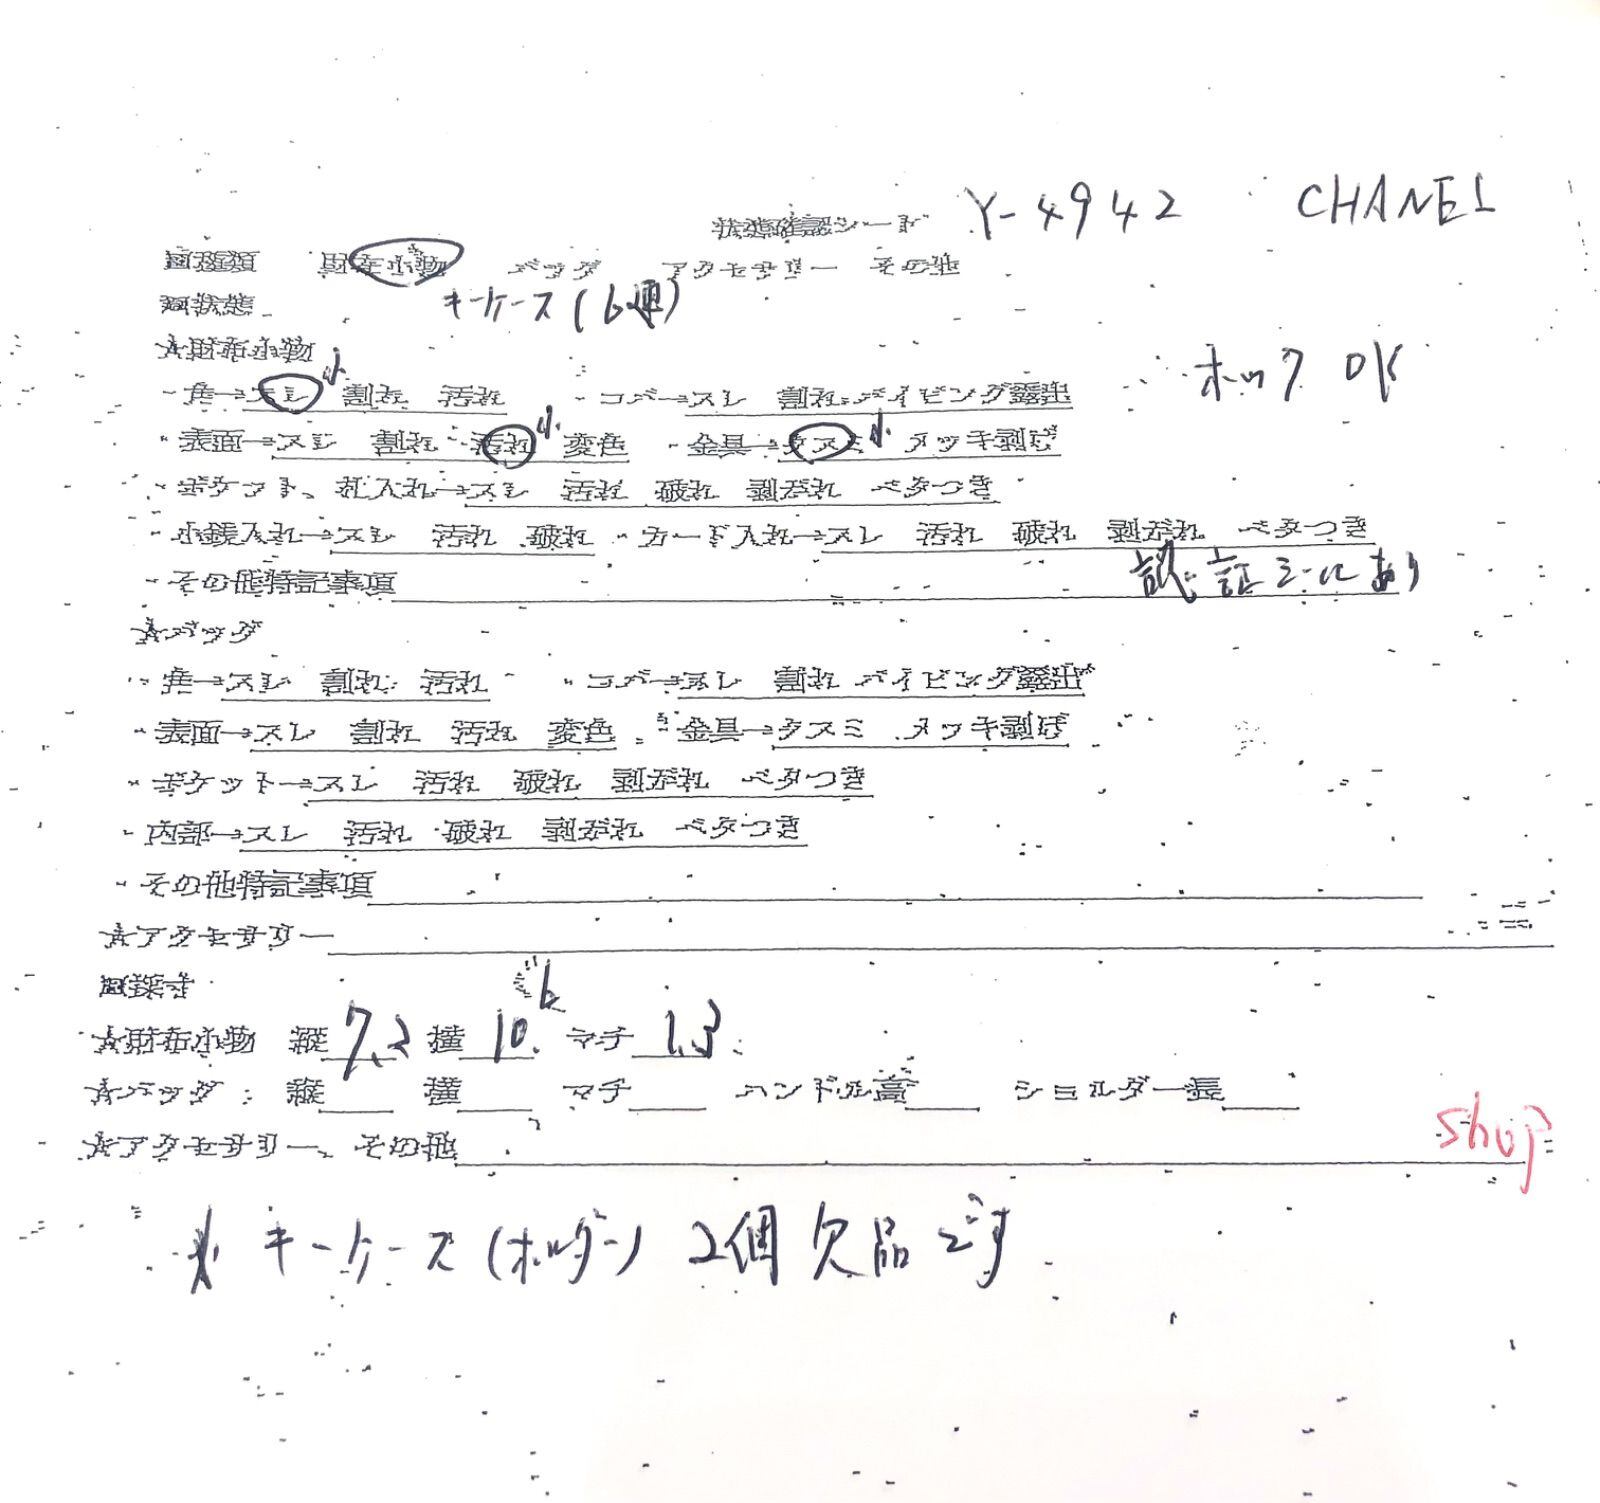 状態確認シート Y-4942 CHANEL
■種類 財布小物 バッグ アクセサリー その他
キーケース(6連)
■状態
★財布小物
ホック OK
・角→スレ 小 割れ 汚れ ・コバ→スレ 割れ パイピング露出
・表面→スレ 割れ 汚れ 小 変色 ・金具→クスミ 小 メッキ剥げ
・ポケット、札入れ→スレ 汚れ 破れ 剥がれ ベタつき
・小銭入れ→スレ 汚れ 破れ ・カード入れ→スレ 汚れ 破れ 剥がれ ベタつき
・その他特記事項 認証シールあり
★バッグ
・角→スレ 割れ 汚れ ・コバ→スレ 割れ パイピング露出
・表面→スレ 割れ 汚れ 変色 ・金具→クスミ メッキ剥げ
・ポケット→スレ 汚れ 破れ 剥がれ ベタつき
・内部→スレ 汚れ 破れ 剥がれ ベタつき
・その他特記事項
★アクセサリー
■採寸
★財布小物 縦 7.2 横 10. マチ 1.3
★バッグ:縦 横 マチ ハンドル高 ショルダー長
★アクセサリー、その他
shop
キーケース(ホルダー) 2個欠品です